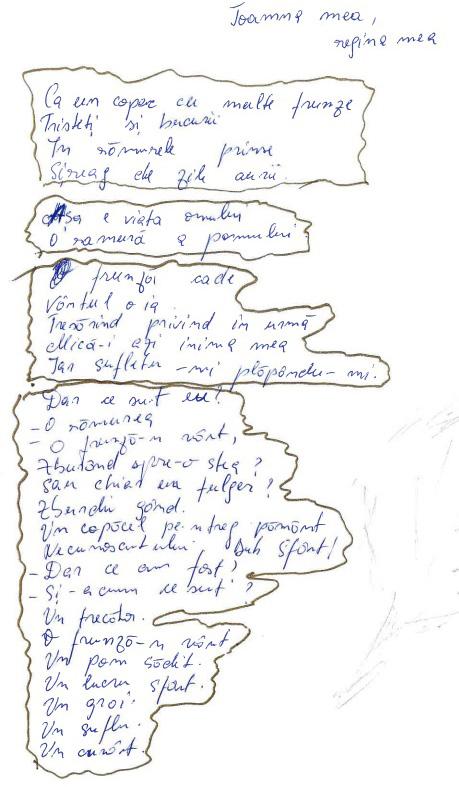 Toamna mea,
regina mea
Ca un copac cu multe frunze
Tristeți și bucurii
În rămurele prinse
Șirag de zile aurii.
Așa e viața omului
O ramură a pomului
O frunză cade
Vântul o ia
Tresărind privind în urmă
Mică-i azi inima mea
Iar sufletu-mi plăpându-mi.
Dar ce sunt eu?
- O rămurea
- O frunză-n vânt,
Zburând spre-o stea?
Sau chiar un fulger?
Zburdă gând.
Un copăcel pe-ntreg pământ
Necunoscutului Duh Sfânt!
- Dar ce am fost?
- Și-acum ce sunt?
Un trecător.
O frunză-n vânt
Un pom sădit.
Un lucru sfânt.
Un grai.
Un suflu.
Un cuvânt.